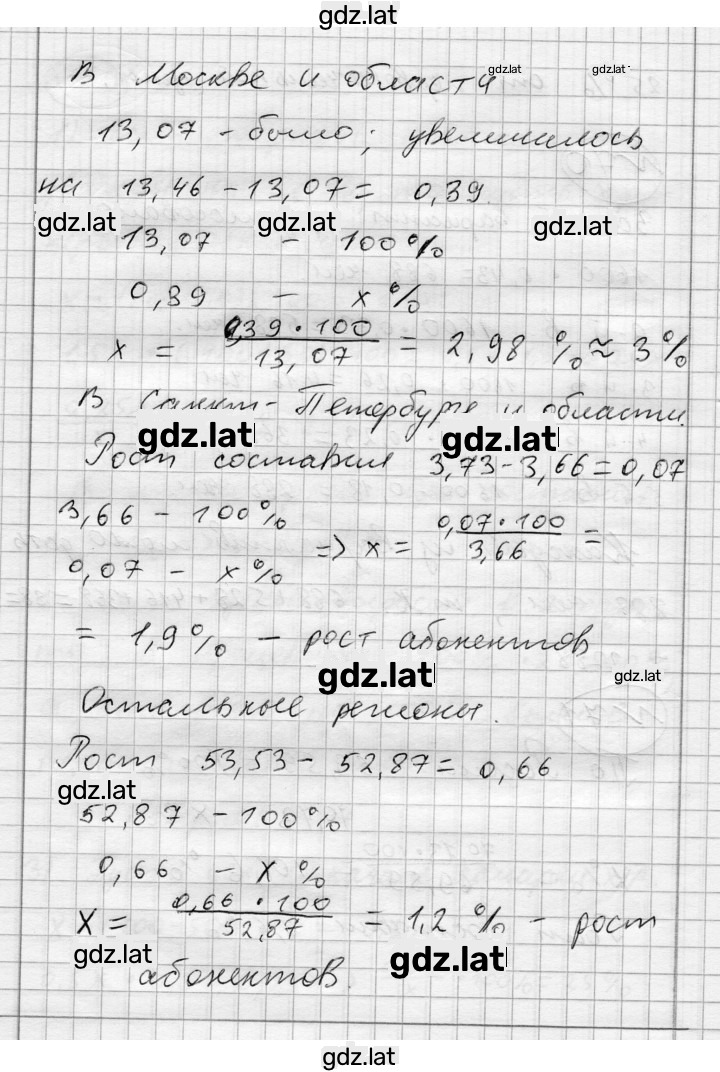 gdz.lat
В Москве и области
gdz.lat
gdz.lat
13,07 - было; увеличилось
на 13,46 - 13,07 = 0,39.
gdz.lat
gdz.lat
gdz.lat
13,07 - 100%
0,39 - x%
x = 0,39·100 / 13,07 = 2,98 % ≈ 3%
В Санкт-Петербурге и области.
gdz.lat
gdz.lat
Рост составил 3,73 - 3,66 = 0,07
3,66 - 100%
0,07 - x%
=> x = 0,07·100 / 3,66 =
= 1,9% - рост абонентов
gdz.lat
gdz.lat
Остальные регионы.
Рост 53,53 - 52,87 = 0,66
gdz.lat
52,87 - 100%
0,66 - x%
x = 0,66·100 / 52,87 = 1,2 % - рост
gdz.lat
gdz.lat
абонентов.
gdz.lat